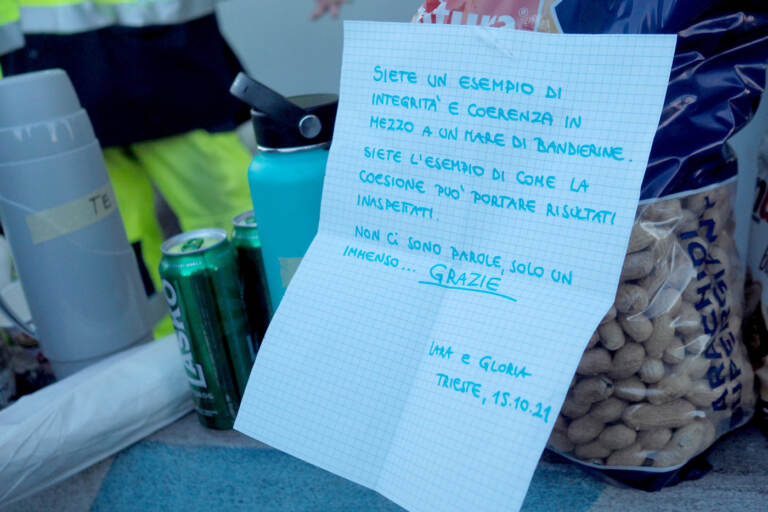 tura
SIETE UN ESEMPIO DI
INTEGRITA' E COERENZA IN
MEZZO A UN MARE DI BANDIERINE.
SIETE L'ESEMPIO DI COME LA
COESIONE PUO' PORTARE RISULTATI
INASPETTATI.
NON CI SONO PAROLE, SOLO UN
IMMENSO... GRAZIE
LARA E GLORIA
TRIESTE, 15.10.21
TE
LAŠKO
ARACHIDI
SUPERGIANTI